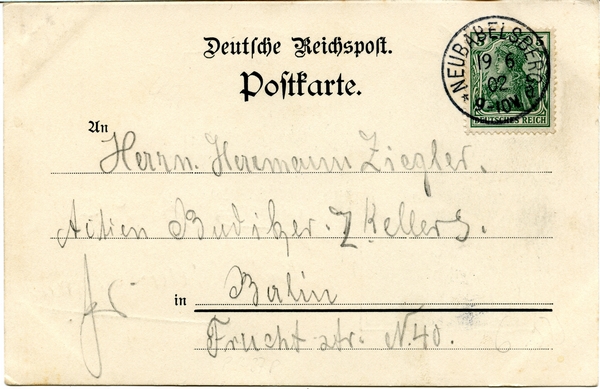 Deutsche Reichspost.
Postkarte.
5
NEUBABELSBERG
19 6
02
9-10V
DEUTSCHES REICH
An
Herrn. Herrmann Ziegler.
Actien Budiker. Keller
in Berlin
Frucht str: N. 40.